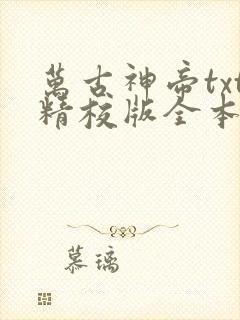 萬古神帝txt
精校版全本
慕璃